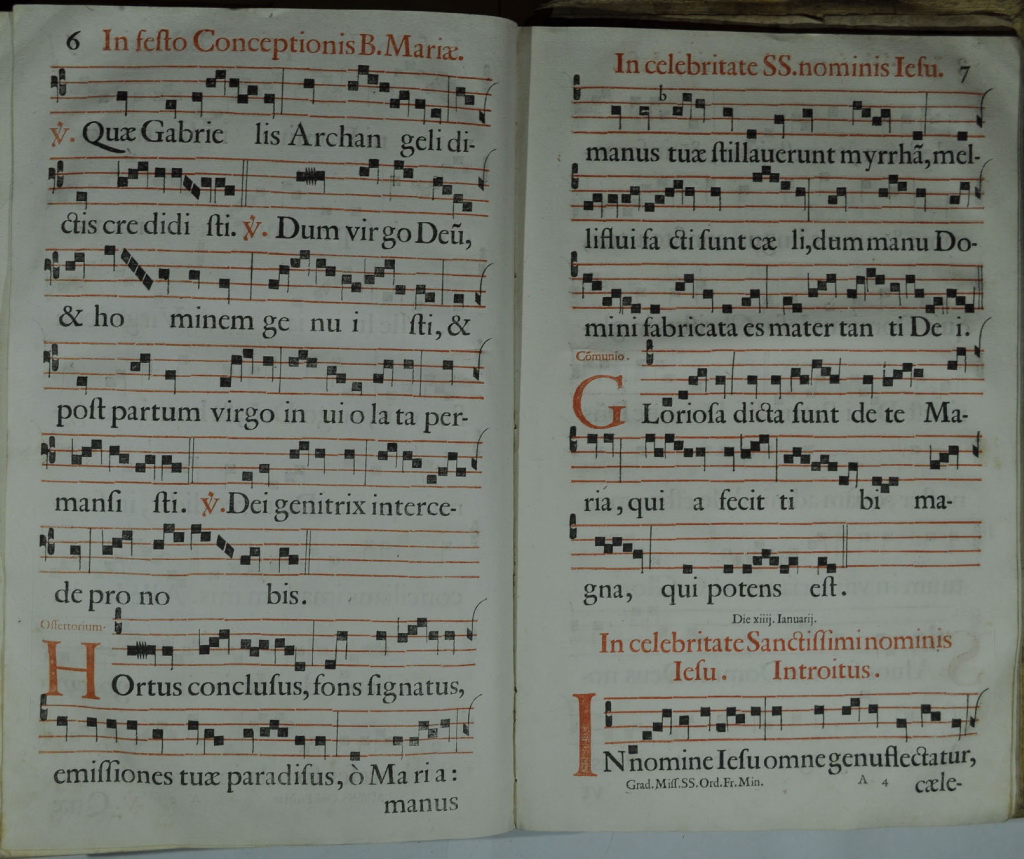 6 In feſto Conceptionis B. Mariæ.
℣. Quæ Gabrie lis Archan geli di-
ctis cre didi ſti. ℣. Dum vir go Deũ,
& ho minem ge nu i ſti, &
poſt partum virgo in ui o la ta per-
manſi ſti. ℣. Dei genitrix interce-
de pro no bis.
Offertorium.
HOrtus concluſus, fons ſignatus,
emiſſiones tuæ paradiſus, ò Ma ri a:
manus
In celebritate SS. nominis Ieſu. 7
b
manus tuæ ſtillauerunt myrrhã, mel-
liflui fa cti ſunt cæ li, dum manu Do-
mini fabricata es mater tan ti De i.
Cõmunio.
GLorioſa dicta ſunt de te Ma-
ria, qui a fecit ti bi ma-
gna, qui potens eſt.
Die xiiij. Ianuarij.
In celebritate Sanctiſſimi nominis
Ieſu. Introitus.
INnomine Ieſu omne genu flectatur,
Grad. Miſſ. SS. Ord. Fr. Min. A 4 cæle-